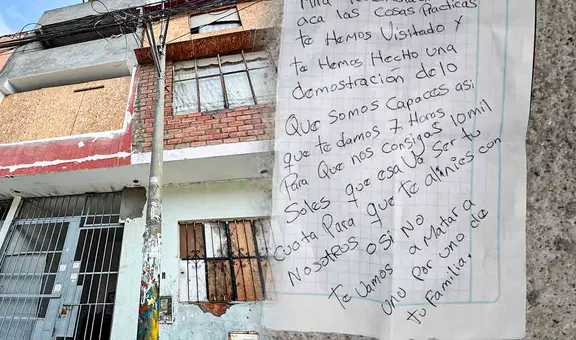 aca las Cosas Practicas
te Hemos Visitado y
te Hemos Hecho una
demostración de lo
Que somos Capaces asi
que te damos 7 Horas
Para Que nos consigas 10 mil
Soles que esa va Ser tu
Cuota Para que te alinies con
Nosotros o si No
te Vamos a Matar a
uno por uno de
tu Familia.